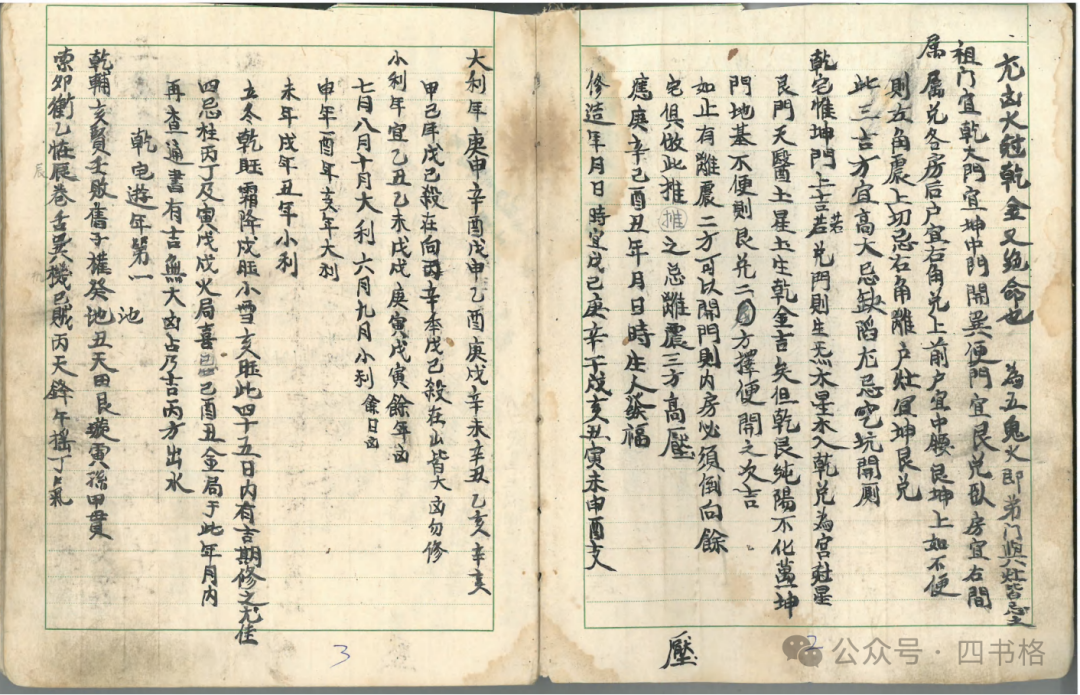 尤凶火尅乾金又絶命也　為五鬼火即弟门與灶皆忌之
祖门宜乾大門宜坤中門開巽便門宜艮兑卧房宜右間
属属兑各房后户宜右角兑上前户宜中腰艮坤上如不便
則左角震上切忌右角離户灶宜坤艮兑
此三吉方宜高大忌缺滔尤忌吃坑開厠
乾宅惟坤門上吉若若兑門則生炁木星木入乾兑為宫尅星
艮門天醫土星土生乾金吉矣但乾艮純陽不化萬坤
門地基不便則艮兑二方擇便開之次吉
如止有離震二方可以開門則内房必須倒向餘
宅俱倣此推推之忌離震三方高壓
應庚辛己酉丑年月日時庄人發福
修造年月日時宜戊己庚辛午戌亥丑寅未申酉支
壓
2
公众号·四书格
大利年庚申辛酉戊申乙酉庚戌辛未辛丑乙亥辛亥
甲己年戊己殺在向丙辛本戊己殺在山皆大凶勿修
小利年宜乙丑乙未戊戌庚寅戊寅餘年凶
七月八月十月大利六月九月小利餘日凶
申年酉年亥年大利
未年戌年丑年小利
立冬乾旺霜降戌旺小雪亥旺此四十五日内有吉期修之尤佳
四忌柱丙丁及寅戌戌火局喜己酉丑金局于此年月内
再查通書有吉無大凶占乃吉丙方出水
乾宅遊年第一
池
乾輔亥賢壬敗舊子權癸地丑天田艮璇寅孫甲貫
索卯衝乙恠辰巻舌巽機巳賊丙天鋒午搖丁上氣
辰
3